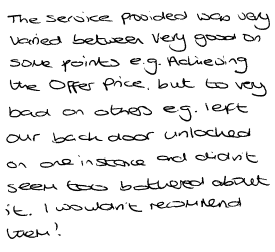 The service provided was very
varied between very good on
some points e.g. Achieving
the Offer Price, but to very
bad on others eg. left
our back door unlocked
on one instance and didn't
seem too bothered about
it. I wouldn't recommend
them!